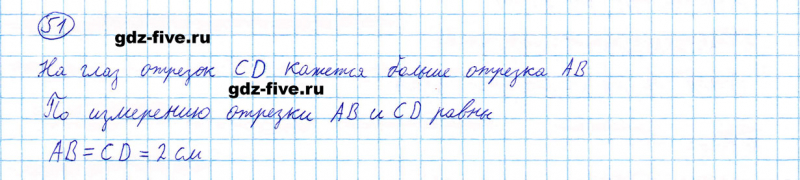 51
gdz-five.ru
На глаз отрезок CD кажется больше отрезка AB
gdz-five.ru
По измерению отрезки AB и CD равны
AB = CD = 2 см